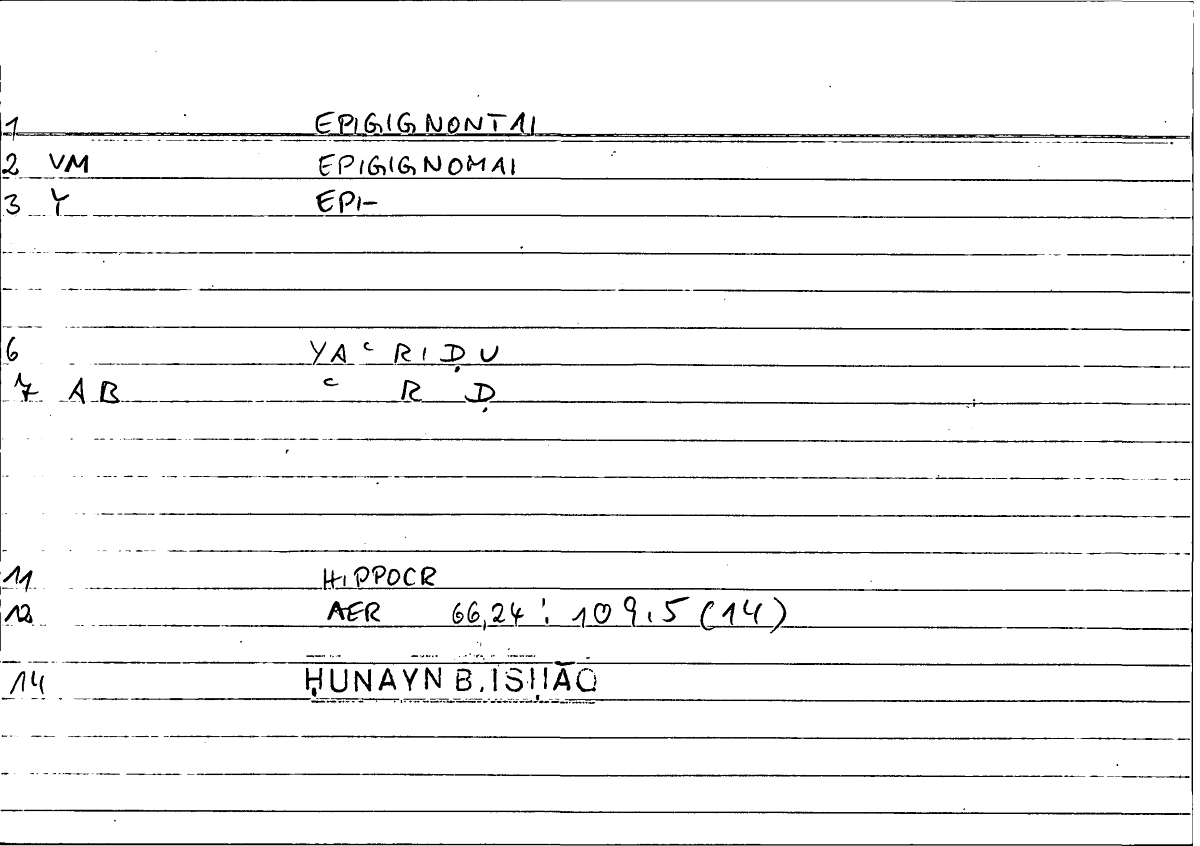 1 EPIGIGNONTAI
2 VM EPIGIGNOMAI
3 Y EPI-
6 YAʿRIḌU
7 AB ʿ R Ḍ
11 HIPPOCR
12 AER 66,24 : 109,5 (14)
14 ḤUNAYN B. ISḤĀQ